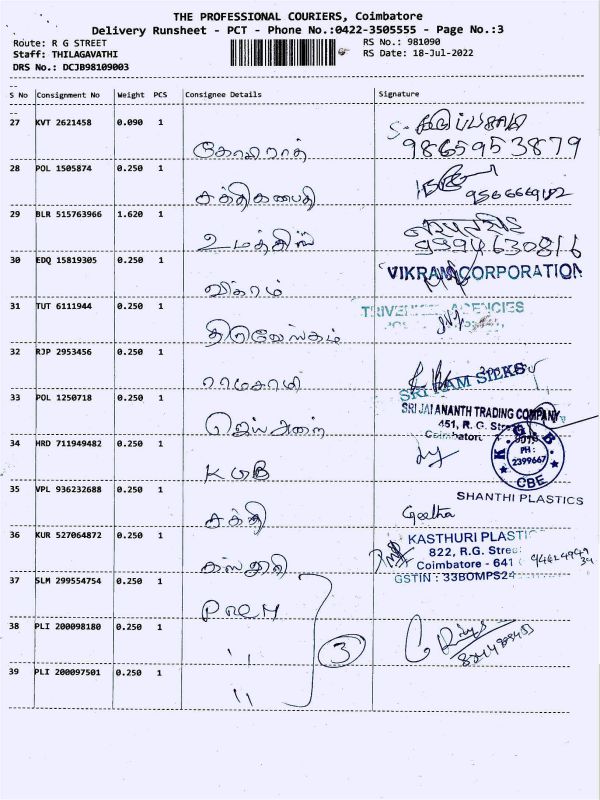 THE PROFESSIONAL COURIERS, Coimbatore
Delivery Runsheet - PCT - Phone No.:0422-3505555 - Page No.:3
Route: R G STREET
RS No.: 981090
Staff: THILAGAVATHI
RS Date: 18-Jul-2022
DRS No.: DCJB98109003
S No Consignment No Weight PCS Consignee Details Signature
27 KVT 2621458 0.090 1
கோபிநாத் 9865953879
28 POL 1505874 0.250 1
சக்திகணபதி
29 BLR 515763966 1.620 1
உமத்சிங் 9994630816
30 EDQ 15819305 0.250 1 VIKRAM CORPORATION
விக்ரம்
31 TUT 6111944 0.250 1 AGENCIES
திருவேங்கடம்
32 RJP 2953456 0.250 1
ராமசாமி SRI RAM SILKS
33 POL 1250718 0.250 1 SRI JAI ANANTH TRADING COMPANY
ஜெய் அனந் 451, R. G. Street
Coimbatore
34 HRD 711949482 0.250 1
KGB K. G. B. PH: 2399667 CBE
35 VPL 936232688 0.250 1 SHANTHI PLASTICS
சக்தி Geetha
36 KUR 527064872 0.250 1 KASTHURI PLASTIC
822, R.G. Street
கஸ்தூரி Coimbatore - 641
GSTIN : 33BOMPS24
37 SLM 299554754 0.250 1
PREM
38 PLI 200098180 0.250 1
,, 3
39 PLI 200097501 0.250 1
,,